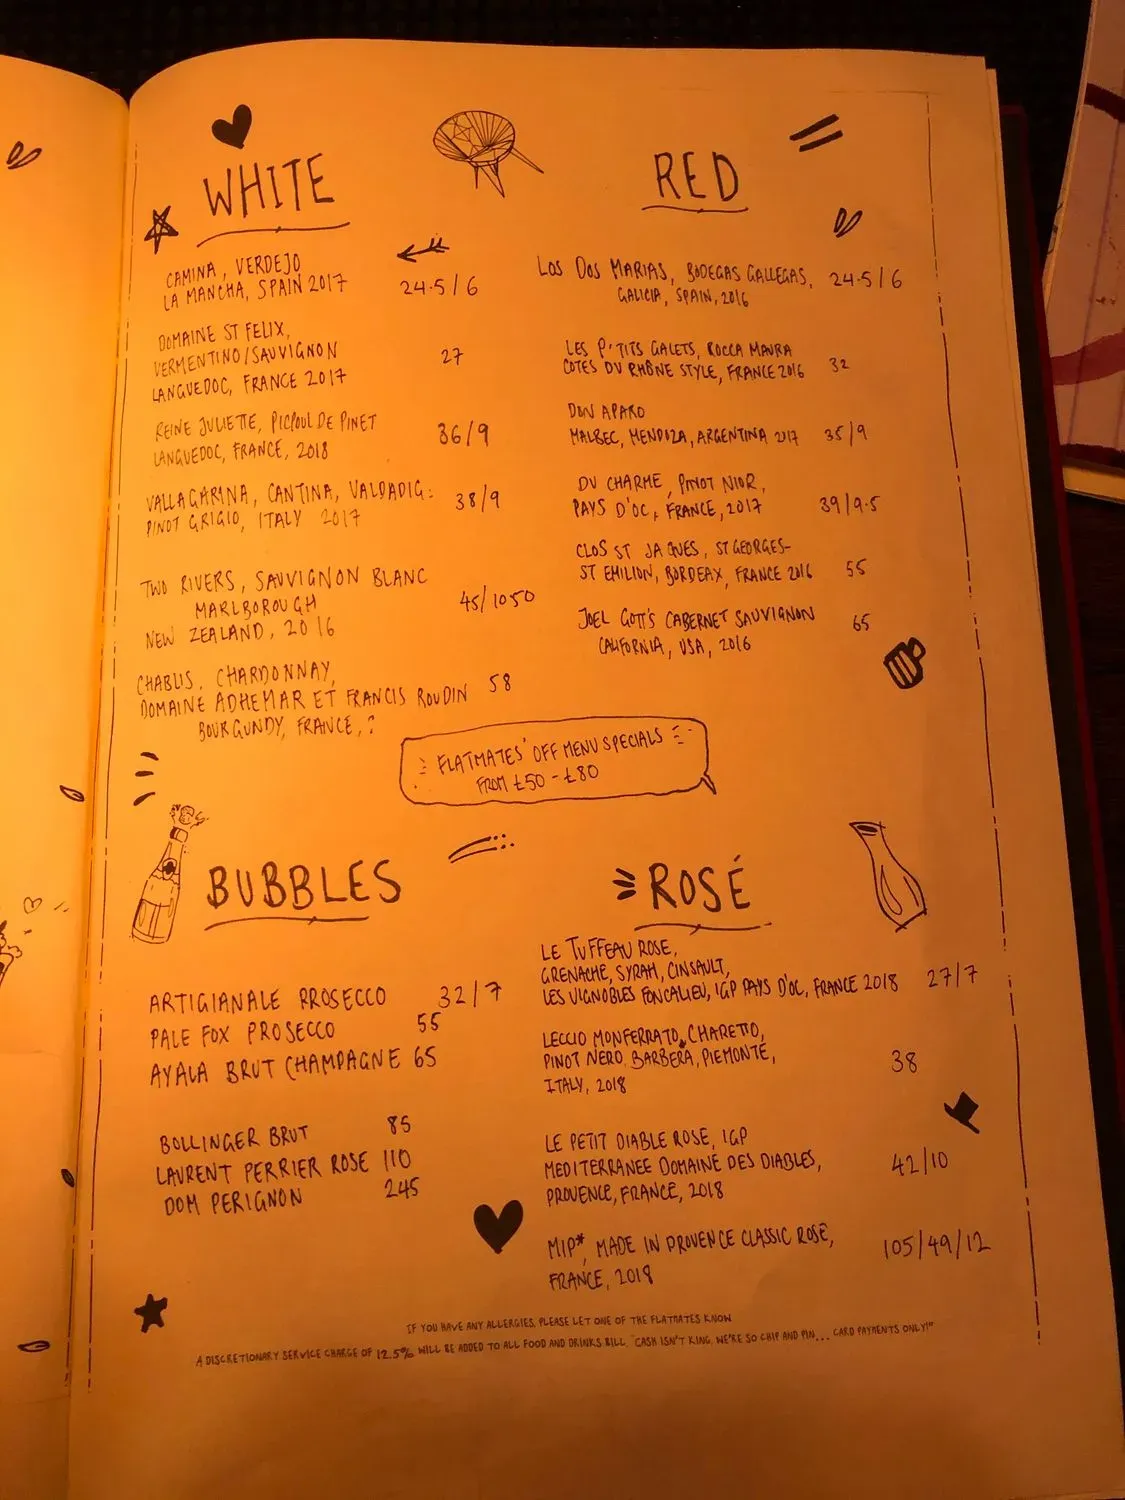 WHITE
CAMINA, VERDEJO
LA MANCHA, SPAIN 2017 24.5/6
DOMAINE ST FELIX,
VERMENTINO/SAUVIGNON 27
LANGUEDOC, FRANCE 2017
REINE JULIETTE, PICPOUL DE PINET
LANGUEDOC, FRANCE, 2018 36/9
VALLAGARINA, CANTINA, VALDADIG:
PINOT GRIGIO, ITALY 2017 38/9
TWO RIVERS, SAUVIGNON BLANC
MARLBOROUGH 45/1050
NEW ZEALAND, 2016
CHABLIS, CHARDONNAY,
DOMAINE ADHEMAR ET FRANCIS ROUDIN 58
BOURGUNDY, FRANCE, ?
RED
LOS DOS MARIAS, BODEGAS GALLEGAS, 24.5/6
GALICIA, SPAIN, 2016
LES P'TITS GALETS, ROCCA MAURA
COTES DU RHÔNE STYLE, FRANCE 2016 32
DON APARO
MALBEC, MENDOZA, ARGENTINA 2017 35/9
DU CHARME, PINOT NIOR,
PAYS D'OC, FRANCE, 2017 39/9.5
CLOS ST JAQUES, ST GEORGES-
ST EMILION, BORDEAX, FRANCE 2016 55
JOEL GOTT'S CABERNET SAUVIGNON 65
CALIFORNIA, USA, 2016
FLATMATES' OFF MENU SPECIALS
FROM £50 - £80
BUBBLES
ARTIGIANALE PROSECCO 32/7
PALE FOX PROSECCO 55
AYALA BRUT CHAMPAGNE 65
BOLLINGER BRUT 85
LAURENT PERRIER ROSE 110
DOM PERIGNON 245
ROSÉ
LE TUFFEAU ROSE,
GRENACHE, SYRAH, CINSAULT,
LES VIGNOBLES FONCALIEU, IGP PAYS D'OC, FRANCE 2018 27/7
LECCIO MONFERRATO, CHARETTO,
PINOT NERO, BARBERA, PIEMONTE, 38
ITALY, 2018
LE PETIT DIABLE ROSE, IGP
MEDITERRANEE DOMAINE DES DIABLES, 42/10
PROVENCE, FRANCE, 2018
MIP*, MADE IN PROVENCE CLASSIC ROSE, 105/49/12
FRANCE, 2018
IF YOU HAVE ANY ALLERGIES, PLEASE LET ONE OF THE FLATMATES KNOW
A DISCRETIONARY SERVICE CHARGE OF 12.5% WILL BE ADDED TO ALL FOOD AND DRINKS BILL. "CASH ISN'T KING, WE'RE SO CHIP AND PIN... CARD PAYMENTS ONLY!"